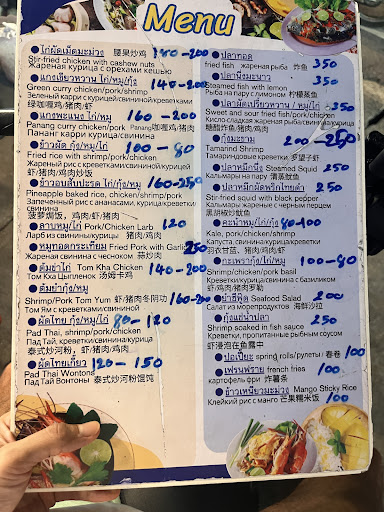 Menu
ไก่ผัดเม็ดมะม่วง 腰果炒鸡 140-200
Stir-fried chicken with cashew nuts
Жареная курица с орехами кешью
แกงเขียวหวาน ไก่/หมู/กุ้ง
Green curry chicken/pork/shrimp 140-200
Зеленый карри с курицей/свининой/креветками
绿咖喱鸡/猪肉/虾
แกงพะแนง ไก่/หมู 160-200
Panang curry chicken/pork Panang咖喱鸡/猪肉
Пананг карри курица/свинина
ข้าวผัด กุ้ง/หมู/ไก่ 100-80
Fried rice with shrimp/pork/chicken
Жареный рис с креветками/свининой/курицей
虾/猪肉/鸡肉炒饭
ข้าวอบสับปะรด ไก่/กุ้ง/หมู 160-250
Pineapple baked rice, chicken/shrimp/pork
Запеченный рис с ананасами, курица/креветки/свинина
菠萝焗饭，鸡肉/虾/猪肉
ลาบหมู/ไก่ Pork/Chicken Larb 120
Ларб из свинины/курицы 猪肉/鸡肉
หมูทอดกระเทียม Fried Pork with Garlic 250
Жареная свинина с чесноком 蒜炒肉
ต้มข่าไก่ Tom Kha Chicken 140-200
Том Кха Цыпленок 汤姆卡鸡
ต้มยำกุ้ง/หมู
Shrimp/Pork Tom Yum 虾/猪肉冬阴功 160-200
Том Ям с креветками/свининой
ผัดไทย กุ้ง/หมู/ไก่ 80-120
Pad Thai, shrimp/pork/chicken
Пад Тай, креветки/свинина/курица
泰式炒河粉，虾/猪肉/鸡肉
ผัดไทยเกี๊ยว 120-150
Pad Thai Wontons
Пад Тай Вонтоны 泰式炒河粉馄饨
ปลาทอด 350
fried fish жареная рыба 炸鱼
ปลานึ่งมะนาว 350
Steamed fish with lemon
Рыба на пару с лимоном 柠檬蒸鱼
ปลาผัดเปรี้ยวหวาน / หมู/ไก่ 350
Sweet and sour fried fish/pork/chicken
Кисло-сладкая жареная рыба/свинина/курица
糖醋炸鱼/猪肉/鸡肉
กุ้งมะขาม 200-250
Tamarind Shrimp
Тамариндовые креветки, 罗望子虾
ปลาหมึกนึ่ง Steamed Squid 250
Кальмары на пару 清蒸鱿鱼
ปลาหมึกผัดพริกไทยดำ 250
Stir-fried squid with black pepper
Кальмары жареные с черным перцем
黑胡椒炒鱿鱼
คะน้าหมู/ไก่/กุ้ง 80-100
Kale, pork/chicken/shrimp
Капуста, свинина/курица/креветки
羽衣甘蓝, 猪肉/鸡肉/虾
กะเพรากุ้ง/ไก่/หมู 100-80
Shrimp/chicken/pork basil
Креветки/курица/свинина с базиликом
虾/鸡肉/猪肉罗勒
ยำซีฟู้ด Seafood Salad 200
Салат из морепродуктов 海鲜沙拉
กุ้งแช่น้ำปลา 200
Shrimp soaked in fish sauce
Креветки, пропитанные рыбным соусом
虾浸泡在鱼露中
ปอเปี๊ยะ spring rolls/рулеты/ 春卷 100
เฟรนฟราย french fries 100
картофель фри 炸薯条
ข้าวเหนียวมะม่วง Mango Sticky Rice
Клейкий рис с манго 芒果糯米饭 100